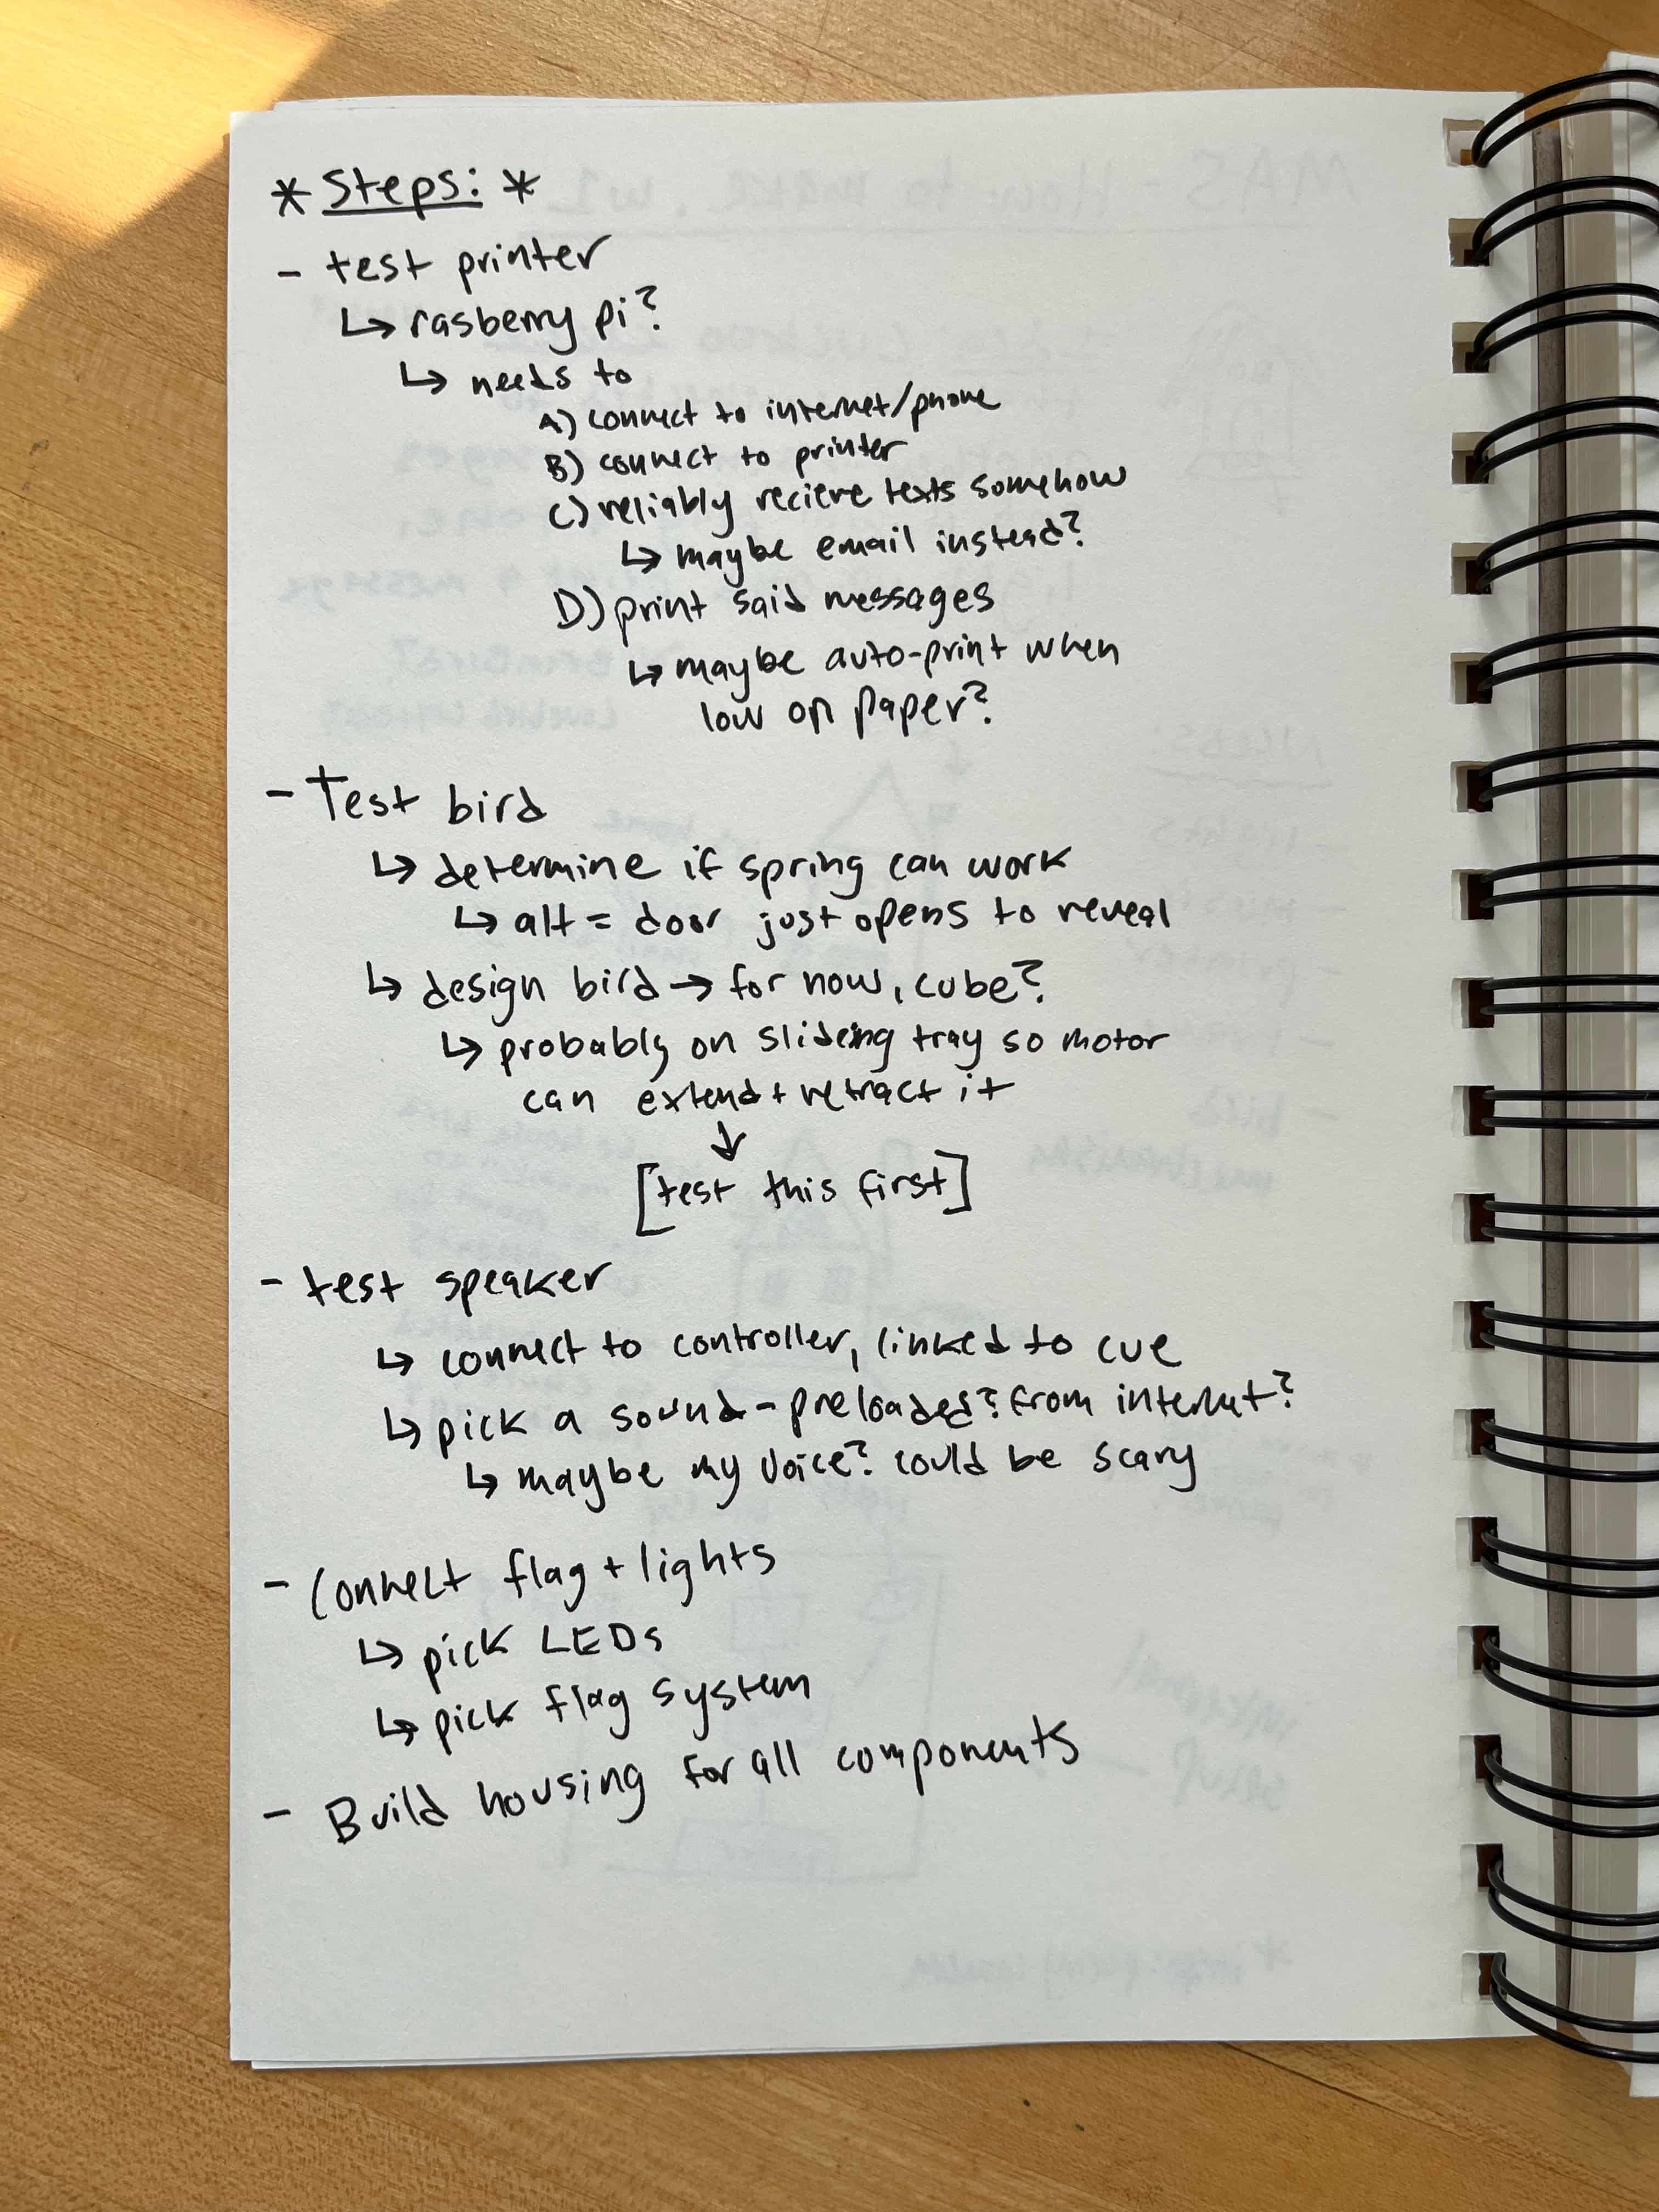 * Steps: *
- test printer
↳ rasberry pi?
↳ needs to
A) connect to internet/phone
B) connect to printer
C) reliably recieve texts somehow
↳ maybe email instead?
D) print said messages
↳ maybe auto-print when
low on paper?
- Test bird
↳ determine if spring can work
↳ alt = door just opens to reveal
↳ design bird → for now, cube?
↳ probably on slideing tray so motor
can extend + retract it
↓
[test this first]
- test speaker
↳ connect to controller, linked to cue
↳ pick a sound - preloaded? from internet?
↳ maybe my voice? could be scary
- Connect flag + lights
↳ pick LEDs
↳ pick flag system
- Build housing for all components